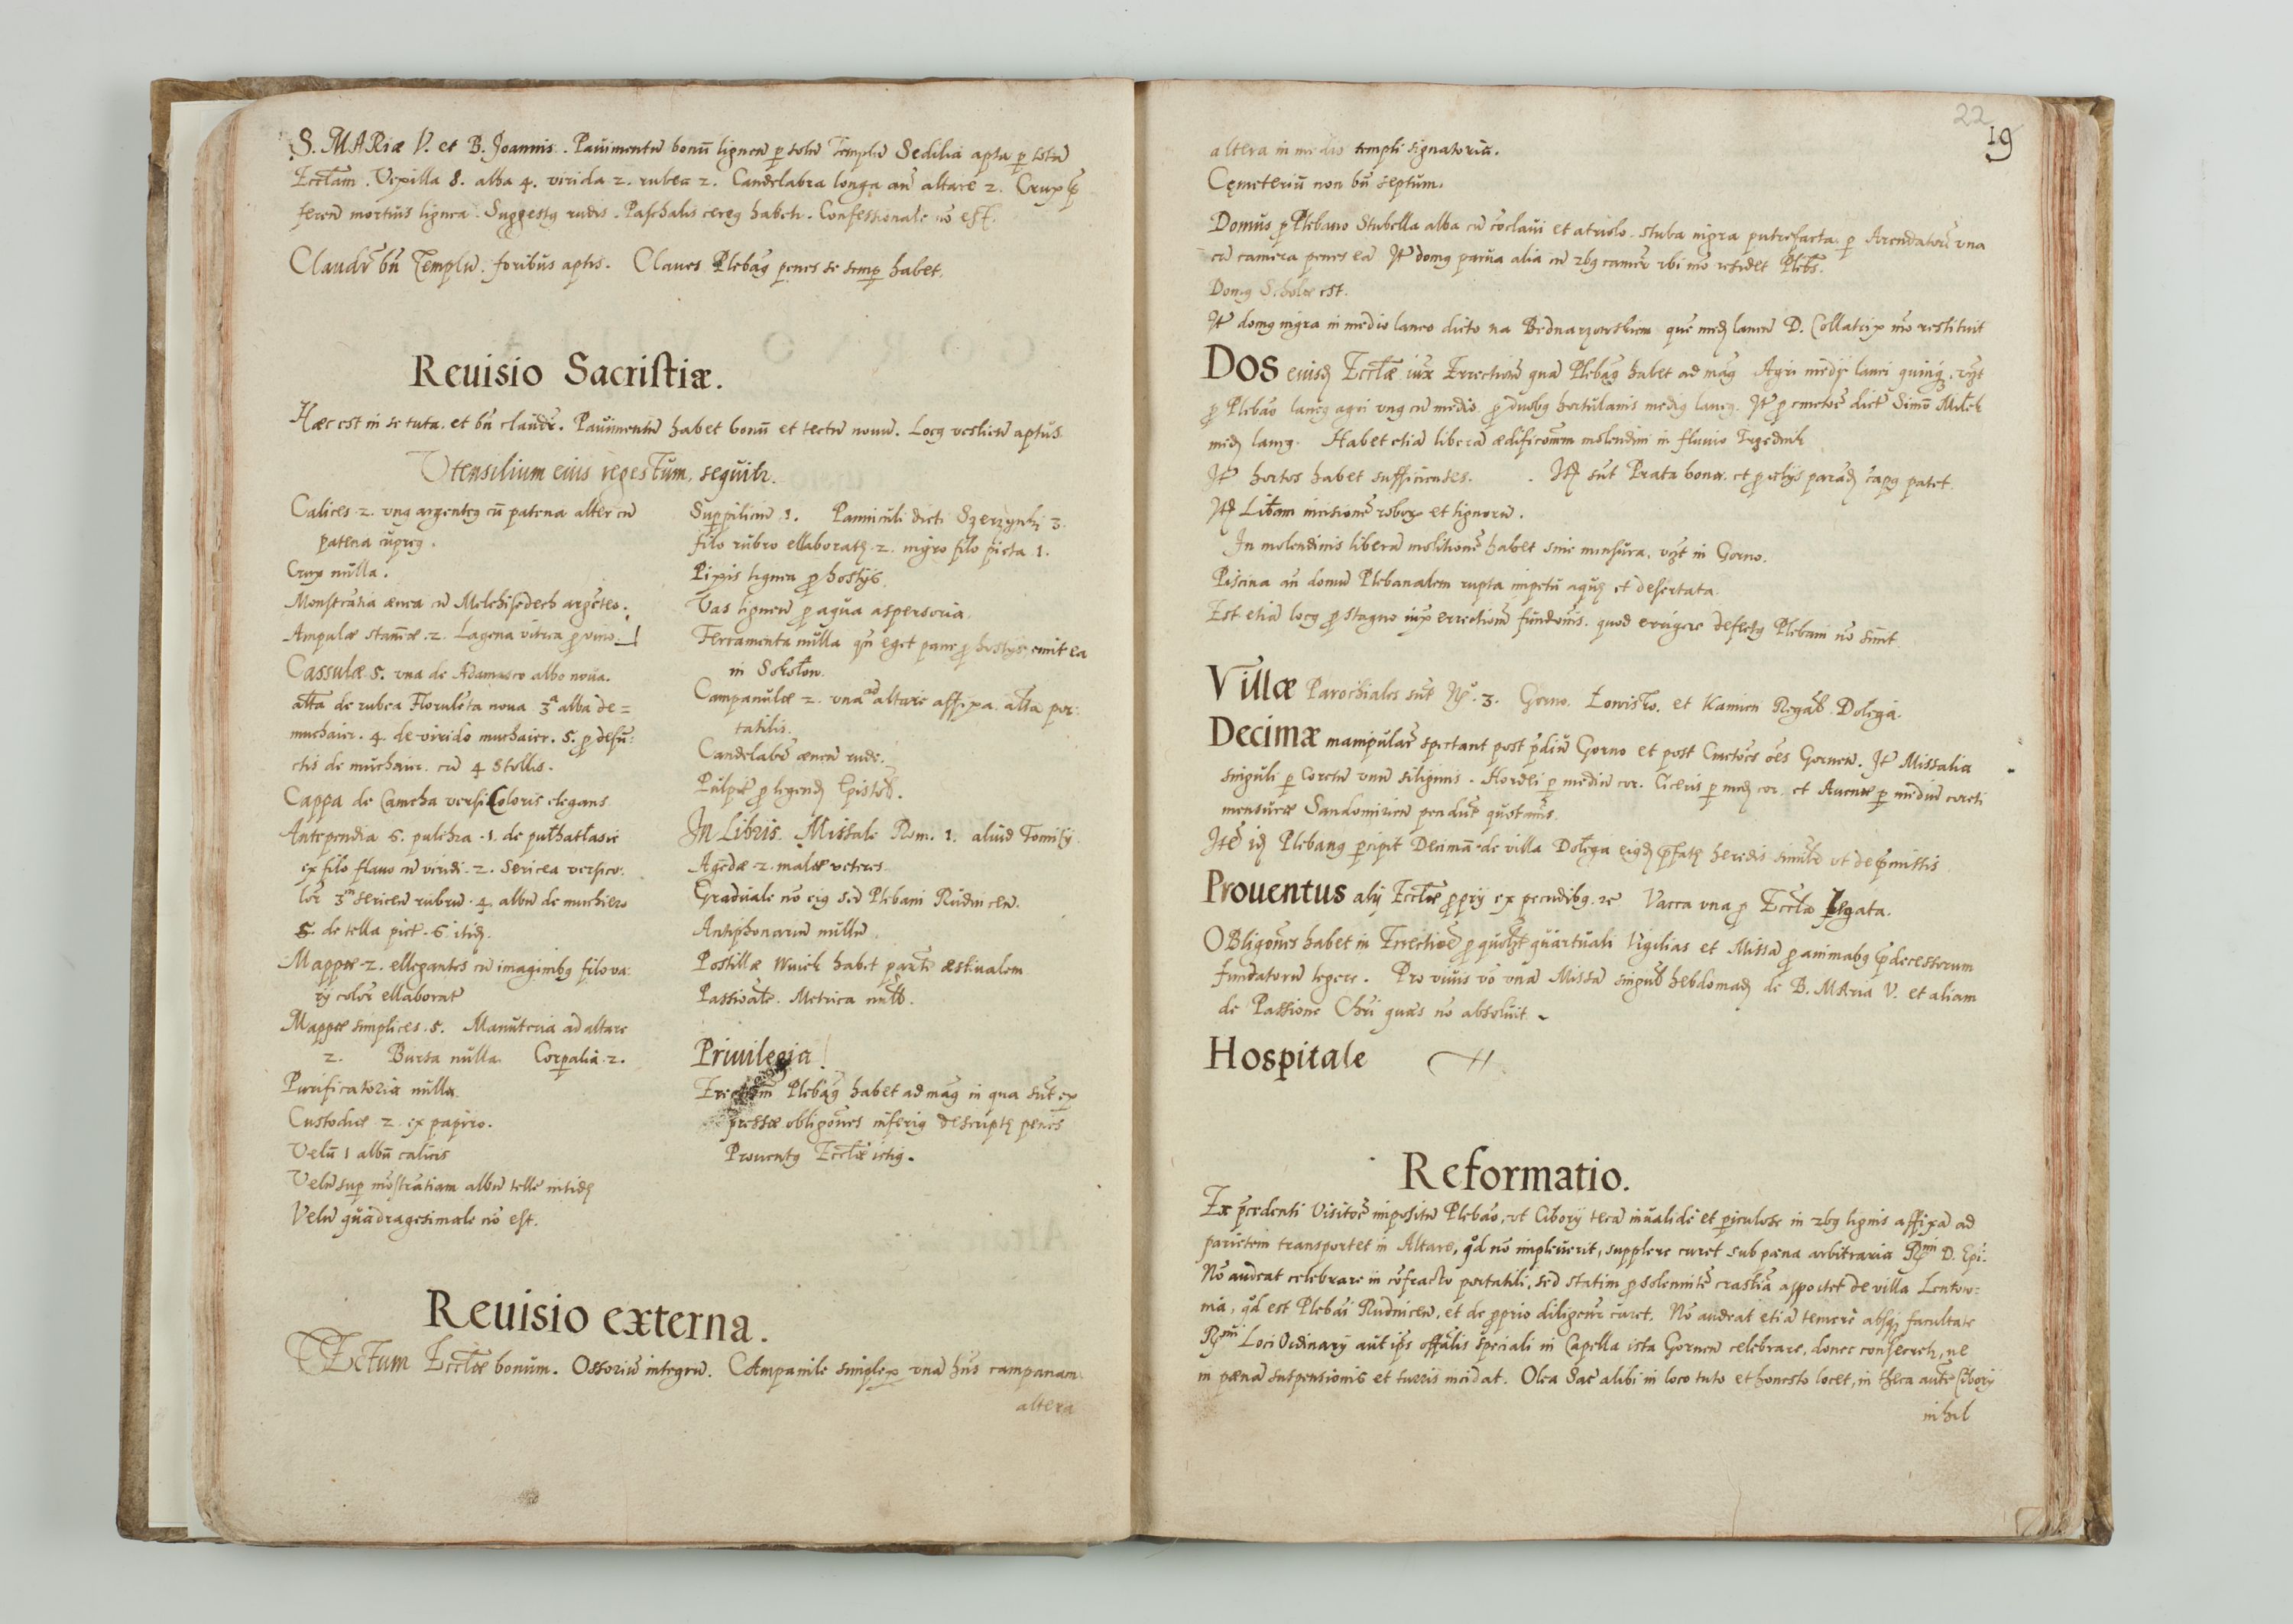 S. MARiæ V. et B. Joannis. Pauimentū bonū ligneū p totū Templū Sedilia apta p totā
Ecctam. Vexilla 8. alba 4. virida 2. rubea 2. Candelabra longa an altare 2. Crux
feren mortuis lignea. Suggestq rudis. Paschalis cereq habetr. Confessionale nō est.
Claudr bn Templū foribus aptis. Claues Plebāq penes se semp habet.
Reuisio Sacristiæ.
Hæc est in se tuta. et bn claudr. Pauimentū habet bonū et tectū nouū. Locq vestiū aptus.
Vtensilium eius regestum, sequitr.
Calices 2. vnq argenteq cū patena alter cū
patena cupreq.
Crux nulla.
Monstratia ænea cū Melchisedech argēteo.
Ampulæ stanēæ 2. Lagena vitrea p vino. 1
Cassulæ 5. vna de Adamasco albo noua.
alta de rubea Floruleta noua 3a alba de=
muchaier. 4. de virido muchaier. 5. p defū:
ctis de muchaier. cū 4 Stollis.
Cappa de Camcha versiColoris elegans
Antependia 6. pulchra 1. de puthatlasie
ex filo flauo cū viridi. 2. Sericea versico:
lor 3m sericeū rubrū. 4. albū de muchiero
5. de tella pict. 6. itid.
Mappæ 2. ellegantes cū imaginibq filo va:
rij color ellaborat
Mappæ simplices 5. Manuteria ad altare
2. Bursa nulla. Corpalia 2.
Purificatoria nulla.
Custodiæ 2. ex papiro.
Velū 1 albū calicis
Velū sup mōstratiam albū tellē nitidę
Velū quadragesimale nō est.
Suppiliciū 1. Panniculi dicti Szerzynki 3.
filo rubro ellaboratę 2. nigro filo picta 1.
Pixis lignea p hostijs.
Vas ligneū p aqua aspersoria.
Ferramenta nulla qn eget pane p hostijs emit ea
in Sokolow.
Campanulæ 2. vna ad altare affixa. alta por:
tatilis.
Candelabr æneū rude.
Pulpit p legend Epistol.
In Libris. Missale Rom. 1. aliud Tomisij.
Agēdæ 2. malæ veteres.
Graduale nō eiq sed Plebani Rudnicen.
Antiphonariū nullū.
Postillæ Wuiek habet partē æstiualem
Passioale. Metrica null.
Priuilegia
Erectōm Plebāq habet ad maq in qua sut ex
pressæ obligōnes inferiq descriptę penes
Prouentq Ecclæ istiq.
Reuisio externa.
TEctum Ecctæ bonum. Ossoriū integrū. CAmpanile simplex vnā hns campanam
altera
22
19
altera in medio templi signatoria.
Cęmeteriū non bn septum.
Domus p Plebano Stubella alba cū cōclaui et atriolo. stuba nigra putrefacta p Arendatore vna
cū camera penes eā It domq parua alia cū 2bq camer vbi mō residet Plebs.
Domq Scholæ est.
It domq nigra in medio laneo dicto na Bednarzowskiem que med laneū D. Collatrix mō restituit
DOS eiusd Ecctæ iux Errectionē quā Plebāq habet ad maq Agri medij lanei quinq. vzt
p Plebāo laneq agri vnq cū medio. p duobq hortulanis mediq laneq. It p cmetoe dict Simō Milek
med laneq. Habet etiā liberā ædificōnem molendini in fluuio
It hortos habet sufficientes. Itd sut Prata bona. et p ictijs parād capq patet.
Itd Libam incisionē robor et lignorū.
In molendinis liberā molitionē habet sine mensura, vzt in Gorno.
Piscina an domū Plebanalem rupta impetu aquę et desertata.
Est etiā locq p stagno iux errectionē fundōnis. quod erigere defectq Plebani nō sinit.
Villæ Parochiales sut No. 3. Gorno. Lowisko. et Kamien Regal. Dolęga.
Decimæ manipular spectant post pdiū Gorno et post Cmetoēs oēs Gornen. It Missalia
singuli p Coretū vnū siliginis. Hordei p mediū cor. Ciceris p med cor. et Auenæ p mediū coreti
mensuræ Sandomirien pendut quotānis.
Itē id Plebanq pcipit Decimā de villa Dolęga eiqd pfatę heredis similr vt de pmissis
Prouentus alij Ecctæ pprij ex pecudibq. re Vacca vna p Ecctā legata.
OBligōnes habet in Errectiōe p quolzt quartuali Vigilias et Missā p animabq pdecessorum
fundatorū legere. Pro viuis vō vnā Missā singul hebdomad de B. MAria V. et aliam
de Passione Chri quas nō absoluit.
Hospitale
Reformatio.
Ex pcedenti Visitoē impositū Plebāo, vt Ciborij tecā inualide et piculose in 2bq lignis affixā ad
parietem transportet in Altare, qd nō impleuerit, supplere curet sub pæna arbitraria Rmi D. Epi:
Nō audeat celebrare in cōfracto portatili, sed statim p solennite crastīa apportet de villa Lentow:
nia, qd est Plebāi Rudnicen, et de pprio diligenr curet. Nō audeat etiā temere absq facultate
Rmi Loci Ordinarij aut ips offālis speciali in Capella ista Gornen celebrare, donec consecretr, ne
in pænā suspensionis et turris incidat. Olea Sac alibi in loco tuto et honesto locet, in theca autē Ciborij
nihil